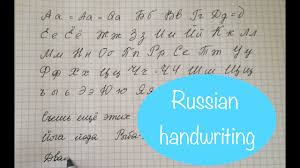 Аа = Аа = Аа Бб Вв Гг Дд = д
Ее Ёё Жж Зз Ии Йй Кк Лл
Мм Нн Оо Пп Рр Сс Тт Уу
Фф Хх Цц Чч Шш Щщ
ъ ы ь Ээ Юю
Съешь ещё этих
Йога йода
Два
Russian
handwriting